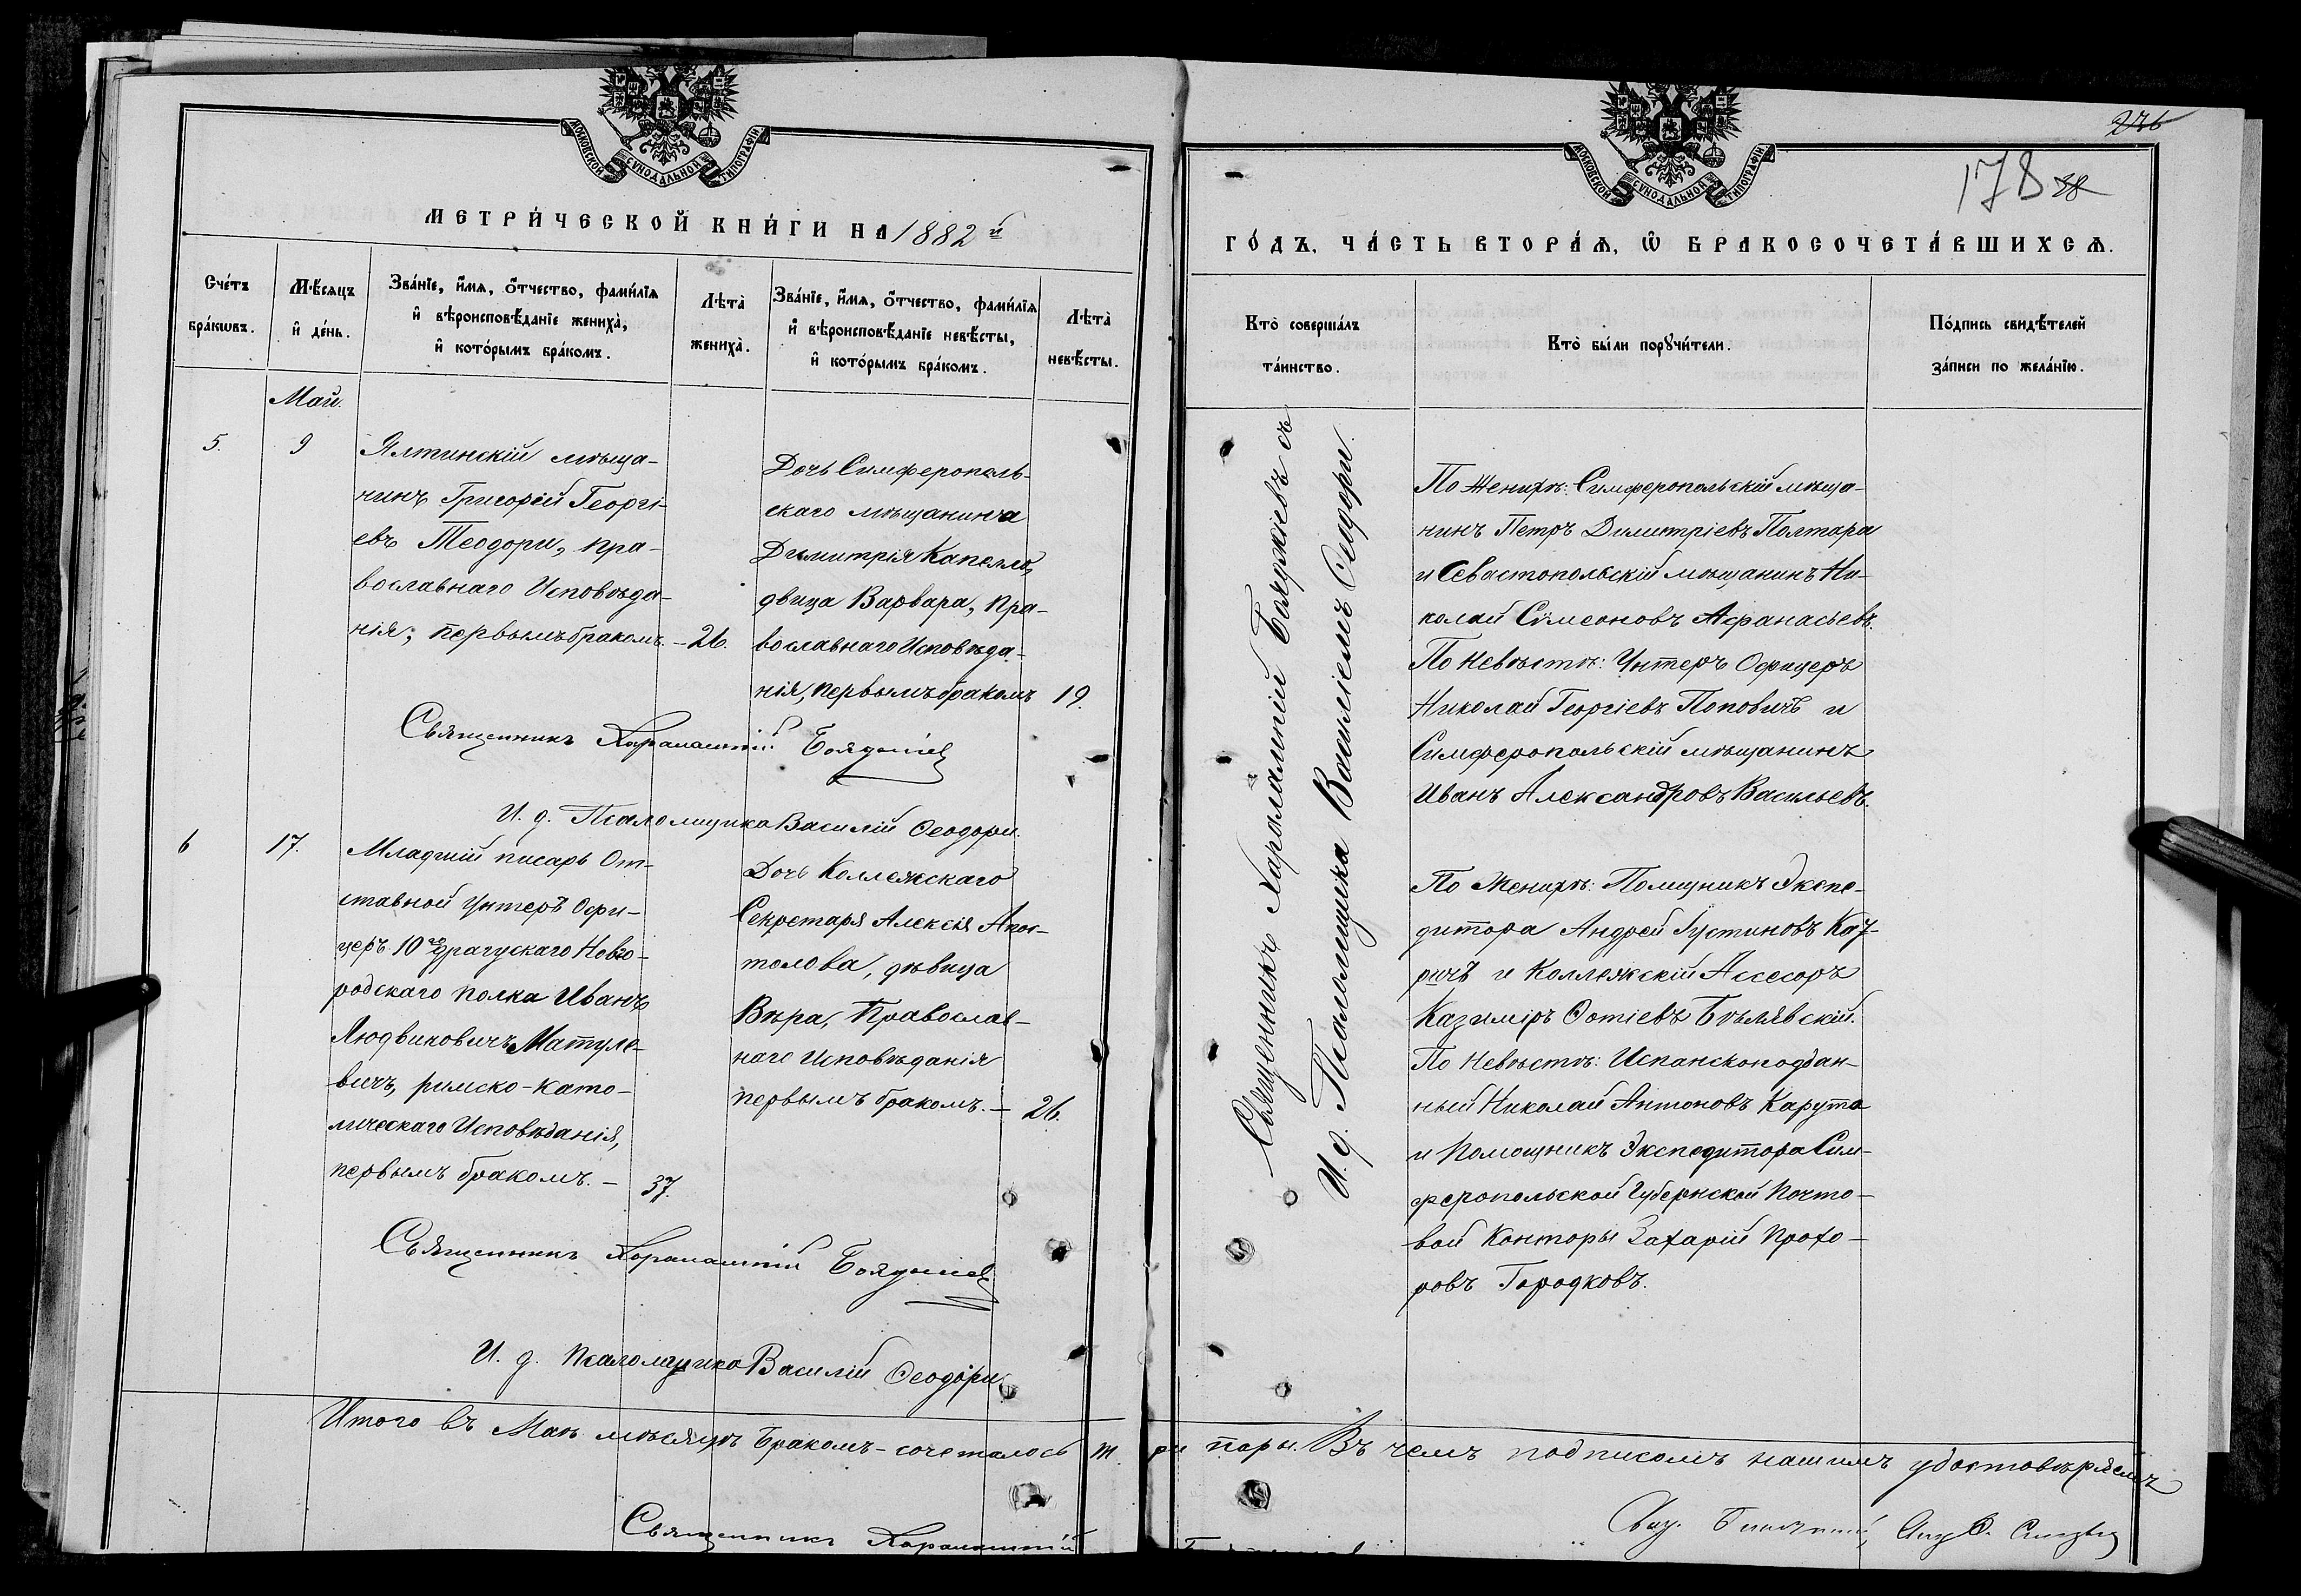 МОСКОВСКОЙ СѴНОДАЛЬНОЙ ТИПОГРАФІИ
МЕТРИ́ЧЕСКОЙ КНИ́ГИ НА 1882 й
Сче́тъ бра́кѡвъ.
Мѣ́сяцъ и҆ де́нь.
Зва́нїе, и҆́мя, ѻ҆́тчество, фами́лїя
и҆ вѣроисповѣ́данїе жениха̀,
и҆ кото́рымъ бра́комъ.
Лѣта̀ жениха̀.
Зва́нїе, и҆́мя, ѻ҆́тчество, фами́лїя
и҆ вѣроисповѣ́данїе невѣ́сты,
и҆ кото́рымъ бра́комъ.
Лѣта̀ невѣ́сты.
Май.
5.
9
Ялтинскій мѣща-
нинъ Григорій Георгі-
евъ Теодори, пра-
вославнаго Исповѣда-
нія, первымъ бракомъ. - 26.
Дочь Симферополь-
скаго мѣщанина
Димитрія Капелло,
двица Варвара, пра-
вославнаго Исповѣда-
нія, первымъ бракомъ 19.
Священникъ Харалампій Бояджіев
И. д. Псаломщика Василій Ѳеодори.
6
17.
Младшій писарь От-
ставной Унтеръ Офи-
церъ 10го Драгускаго Новго-
родскаго полка Иванъ
Людвиковичъ Матуле-
вичъ, римско-като-
лическаго Исповѣданія,
первымъ бракомъ. - 37.
Дочь Коллежскаго
Секретаря Алексія Апос-
толова, дѣвица
Вѣра, Православ-
наго Исповѣданія
первымъ бракомъ. - 26.
Священникъ Харалампій Бояджіев
И. д. Псаломщика Василій Ѳеодори
Итого въ Маѣ мѣсяцѣ Бракомъ-сочеталось т
Священникъ Харалампій
236
178 38
МОСКОВСКОЙ СѴНОДАЛЬНОЙ ТИПОГРАФІИ
ГО́ДЪ, ЧА́СТЬ ВТОРА́Ѧ, Ѽ БРАКОСОЧЕТА́ВШИХСѦ.
Кто̀ соверша́лъ та́инство.
Кто̀ бы́ли порꙋчи́тели.
По́дпись свидѣ́телей за́писи по жела́нїю.
Священникъ Харалампій Бояджіевъ съ
И. д. Псаломщика Василіемъ Ѳеодори.
По Женихѣ: Симферопольскій мѣща-
нинъ Петръ Димитріевъ Полтара
и Севастопольскій мѣщанинъ Ни-
колай Сѵмеоновъ Афанасьевъ.
По Невѣстѣ: Унтеръ Офицеръ
Николай Георгіевъ Поповичъ и
Симферопольскій мѣщанинъ
Иванъ Александровъ Васильевъ.
По Женихѣ: Помщникъ Экспе-
дитора Андрей Іустиновъ
и Коллежскій Ассесоръ
Казиміръ Ѳотіевъ Бѣлявскій.
По Невѣстѣ: Испанскоподдан-
ный Николай Антоновъ Карута
и Помощникъ Экспедитора Сим-
феропольской Губернской Почто-
вой Конторы Захарій Прохо-
ровъ Городковъ.
ри пары. Въ чемъ подписомъ нашимъ удостовѣряемъ